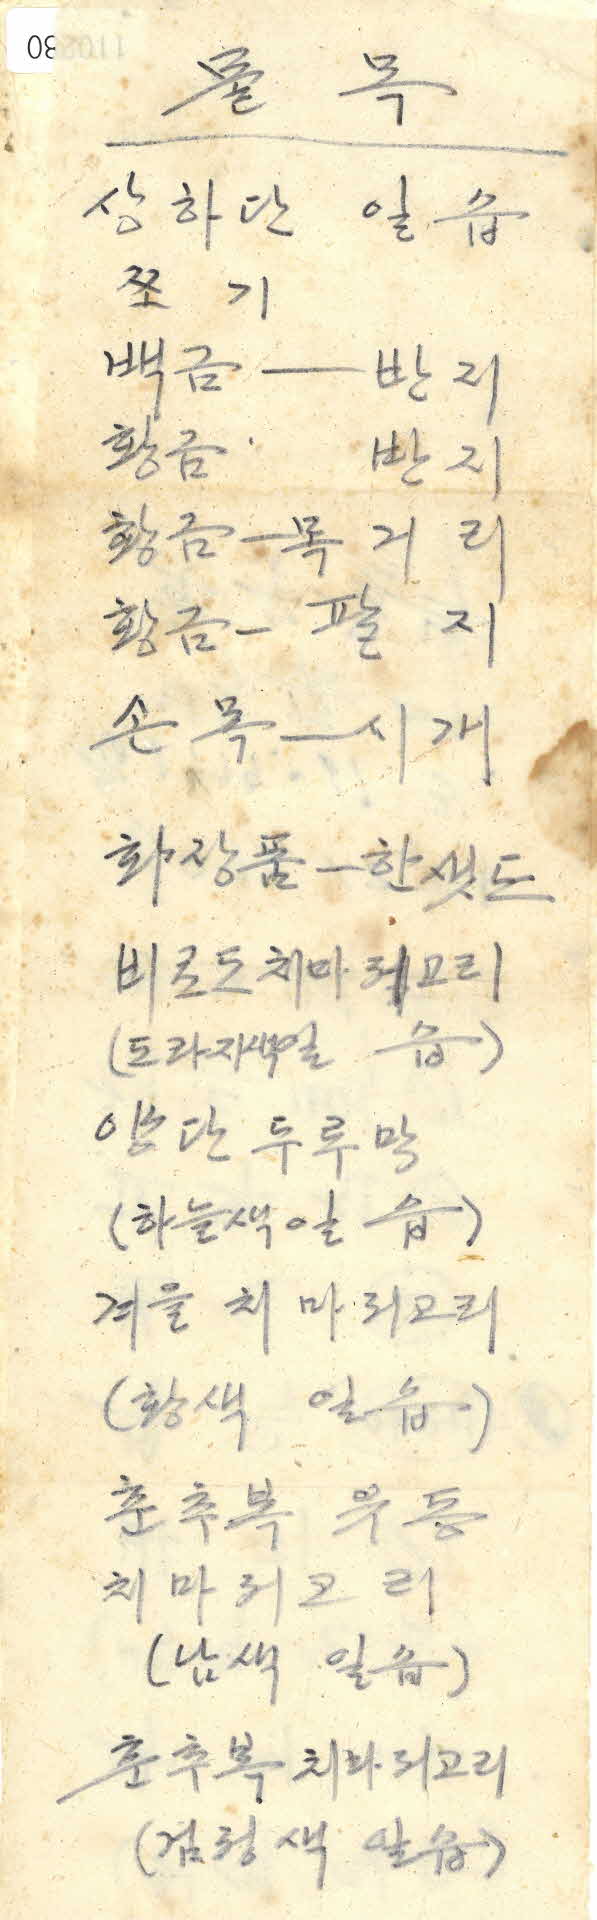 080
물 목
상하단 일습
쪼 기
백금 — 반지
황금 반지
황금 — 목거리
황금 — 팔지
손목 — 시개
화장품 — 한셋드
비로도 치마 저고리
(도라지색 일 습)
양단 두루막
(하늘색 일 습)
겨울 치마 저고리
(황색 일습)
춘추복 우동
치마 저고리
(남색 일습)
춘추복 치마 저고리
(검정색 일습)